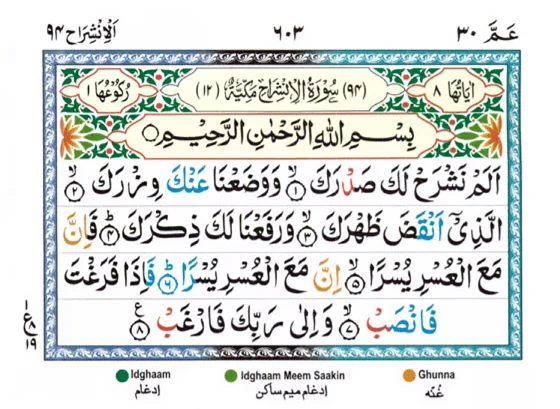 عَمَّ ٣٠
٦٠٣
اَلْاِنْشِرَاح ٩٤
اٰيَاتُهَا ٨
(٩٤) سُوْرَةُ الْاِنْشِرَاحِ مَكِّيَّةٌ (١٢)
رُكُوْعُهَا ١
بِسْمِ اللّٰهِ الرَّحْمٰنِ الرَّحِيْمِ
اَلَمْ نَشْرَحْ لَكَ صَدْرَكَ ۙ‏﴿١﴾ وَوَضَعْنَا عَنْكَ وِزْرَكَ ۙ‏﴿٢﴾
الَّذِيْۤ اَنْقَضَ ظَهْرَكَ ۙ‏﴿٣﴾ وَرَفَعْنَا لَكَ ذِكْرَكَ ؕ‏﴿٤﴾ فَاِنَّ
مَعَ الْعُسْرِ يُسْرًا ۙ‏﴿٥﴾ اِنَّ مَعَ الْعُسْرِ يُسْرًا ؕ‏﴿٦﴾ فَاِذَا فَرَغْتَ
فَانْصَبْ ۙ‏﴿٧﴾ وَاِلٰى رَبِّكَ فَارْغَبْ ﴿٨﴾ ع
١
ع
٨
١٩
Idghaam
ادغام
Idghaam Meem Saakin
ادغام میم ساکن
Ghunna
غُنّه